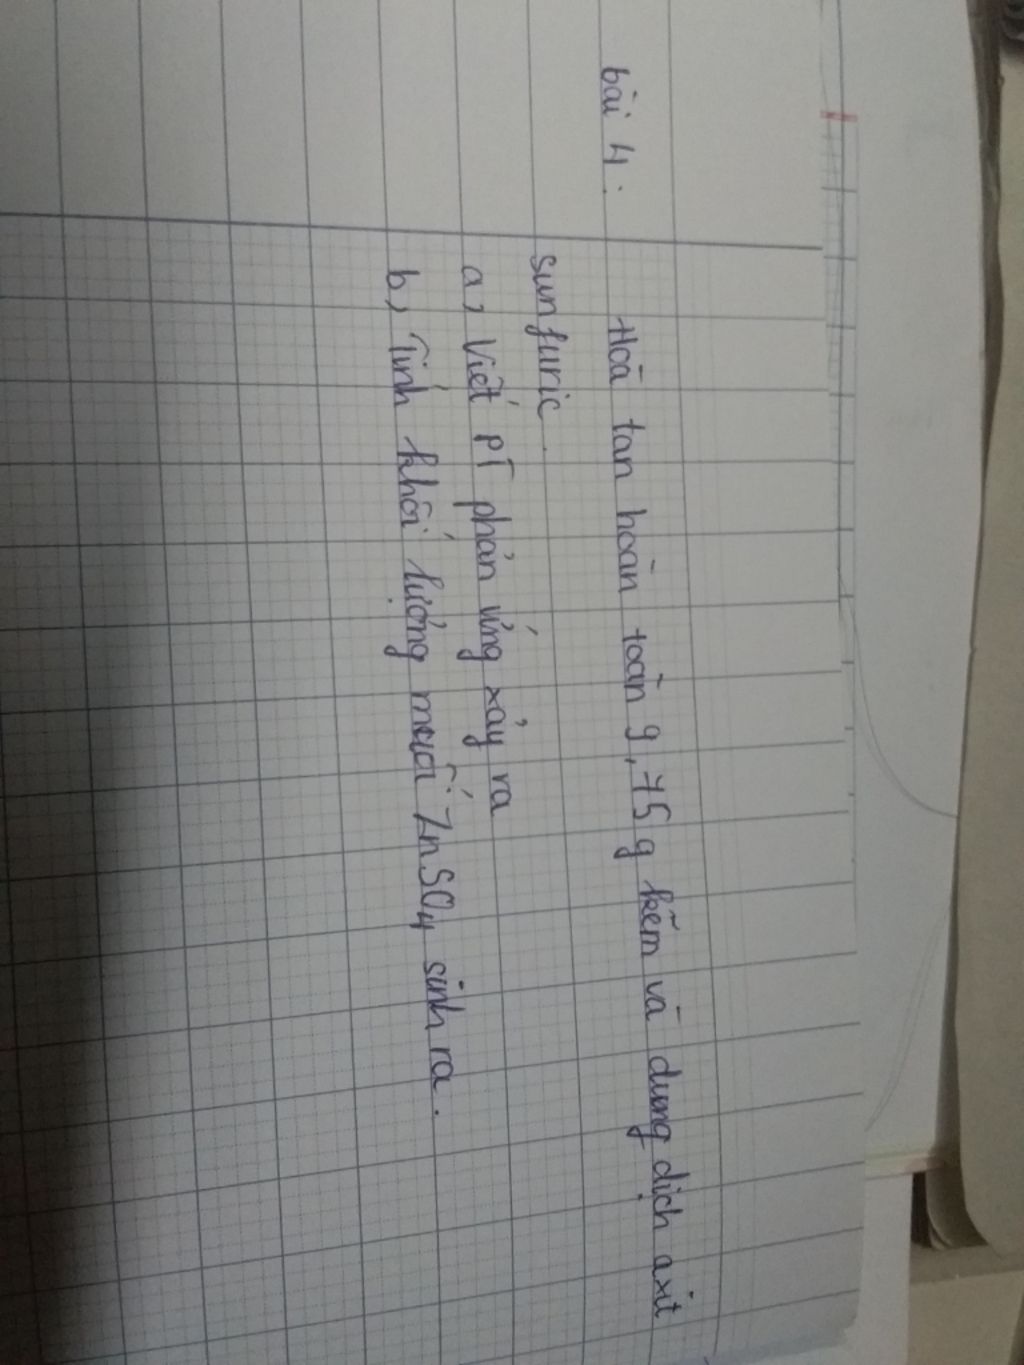 bài 4: Hoà tan hoàn toàn 9,75 g kẽm và dung dịch axit
sunfuric.
a, Viết PT phản ứng xảy ra
b, Tính khối lượng muối ZnSO4 sinh ra.